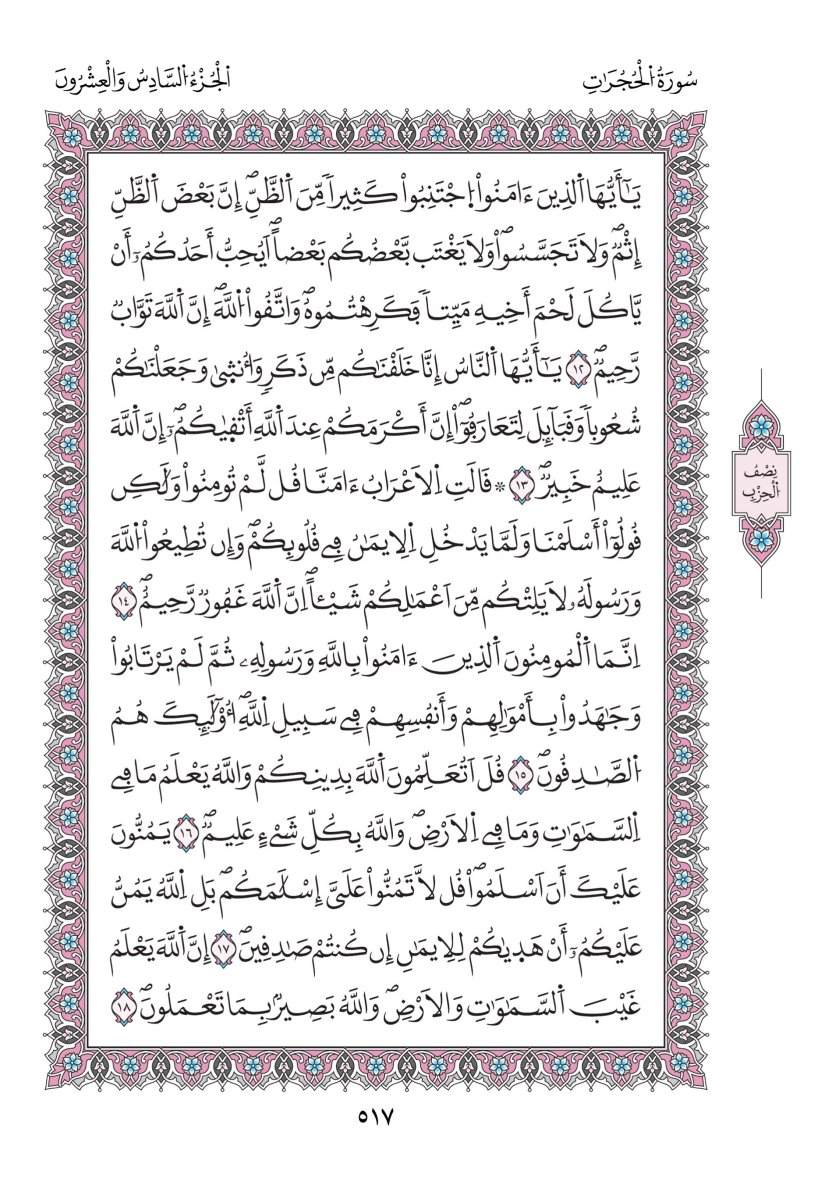 سُورَةُ الْحُجُرَاتِ
الْجُزْءُ السَّادِسُ وَالْعِشْرُونَ
يَٰٓأَيُّهَا اَ۬لذِينَ ءَامَنُواْ اُ۪جْتَنِبُواْ كَثِيراٗ مِّنَ اَ۬لظَّنِّۖ إِنَّ بَعْضَ اَ۬لظَّنِّ
إِثْمٞۖ وَلَا تَجَسَّسُواْۖ وَلَا يَغْتَب بَّعْضُكُم بَعْضاًۖ اَيُحِبُّ أَحَدُكُمُۥٓ أَنْ
يَّاكُلَ لَحْمَ أَخِيهِ مَيِّتاٗ فَكَرِهْتُمُوهُۖ وَاتَّقُواْ اُ۬للَّهَۖ إِنَّ اَ۬للَّهَ تَوَّابٞ
رَّحِيمٞۖ ١٢ يَٰٓأَيُّهَا اَ۬لنَّاسُ إِنَّا خَلَقْنَٰكُم مِّن ذَكَرٖ وَأُنث۪ىٰ وَجَعَلْنَٰكُمْ
شُعُوباٗ وَقَبَآئِلَ لِتَعَارَفُوٓاْۖ إِنَّ أَكْرَمَكُمْ عِندَ اَ۬للَّهِ أَتْق۪يٰكُمُۥٓۖ إِنَّ اَ۬للَّهَ
عَلِيمٌ خَبِيرٞۖ ١٣ ۞ قَالَتِ اِ۬لَاعْرَابُ ءَامَنَّا قُل لَّمْ تُومِنُواْ وَلَٰكِن
قُولُوٓاْ أَسْلَمْنَا وَلَمَّا يَدْخُلِ اِ۬لِايمَٰنُ فِے قُلُوبِكُمْۖ وَإِن تُطِيعُواْ اُ۬للَّهَ
وَرَسُولَهُۥ لَا يَلِتْكُم مِّنَ اَعْمَٰلِكُمْ شَيْـٔاًۖ اِنَّ اَ۬للَّهَ غَفُورٞ رَّحِيمٌۖ ١٤
اِنَّمَا اَ۬لْمُومِنُونَ اَ۬لذِينَ ءَامَنُواْ بِاللَّهِ وَرَسُولِهِۦ ثُمَّ لَمْ يَرْتَابُواْ
وَجَٰهَدُواْ بِأَمْوَٰلِهِمْ وَأَنفُسِهِمْ فِے سَبِيلِ اِ۬للَّهِۖ أُوْلَٰٓئِكَ هُمُ
اُ۬لصَّٰدِقُونَۖ ١٥ قُلَ اَتُعَلِّمُونَ اَ۬للَّهَ بِدِينِكُمْ وَاللَّهُ يَعْلَمُ مَا فِے
اِ۬لسَّمَٰوَٰتِ وَمَا فِے اِ۬لَارْضِۖ وَاللَّهُ بِكُلِّ شَےْءٍ عَلِيمٞۖ ١٦ يَمُنُّونَ
عَلَيْكَ أَنَ اَسْلَمُواْۖ قُل لَّا تَمُنُّواْ عَلَيَّ إِسْلَٰمَكُمۖ بَلِ اِ۬للَّهُ يَمُنُّ
عَلَيْكُمُۥٓ أَنْ هَد۪يٰكُمْ لِلِايمَٰنِ إِن كُنتُمْ صَٰدِقِينَۖ ١٧ إِنَّ اَ۬للَّهَ يَعْلَمُ
غَيْبَ اَ۬لسَّمَٰوَٰتِ وَالَارْضِۖ وَاللَّهُ بَصِيرُۢ بِمَا تَعْمَلُونَۖ ١٨
نِصْفُ
الْحِزْبِ
٥١٧